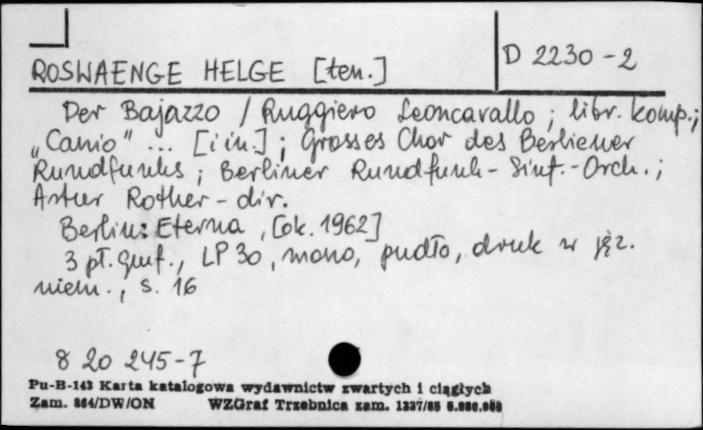 ROSWAENGE HELGE [ten.]
D 2230-2
Der Bajazzo / Ruggiero Leoncavallo ; libr. komp.;
„Canio" ... [i in.] ; Grosses Chor des Berliener
Rundfunks ; Berliner Rundfunk-Sinf.-Orch. ;
Artur Rother - dir.
Berlin: Eterna, [ok. 1962]
3 pł. gmf., LP 30, mono, pudło, druk w jęz.
niem., s. 16
8 20 245-7
Pu-B-143 Karta katalogowa wydawnictw zwartych i ciągłych
Zam. 864/DW/ON WZGraf Trzebnica zam. 1337/85